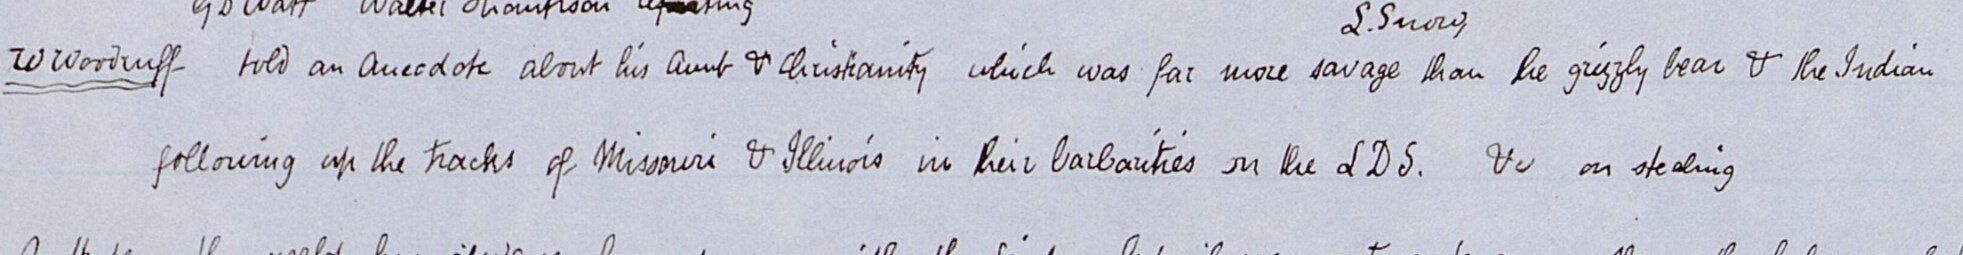 G D Watt Walter Thompson reporting
L. Snow,
W Woodruff told an anecdote about his Aunt & Christianity which was far more savage than he grizzly bear & the Indian
following up the tracks of Missouri & Illinois in their barbarities on the L D S. &c on stealing